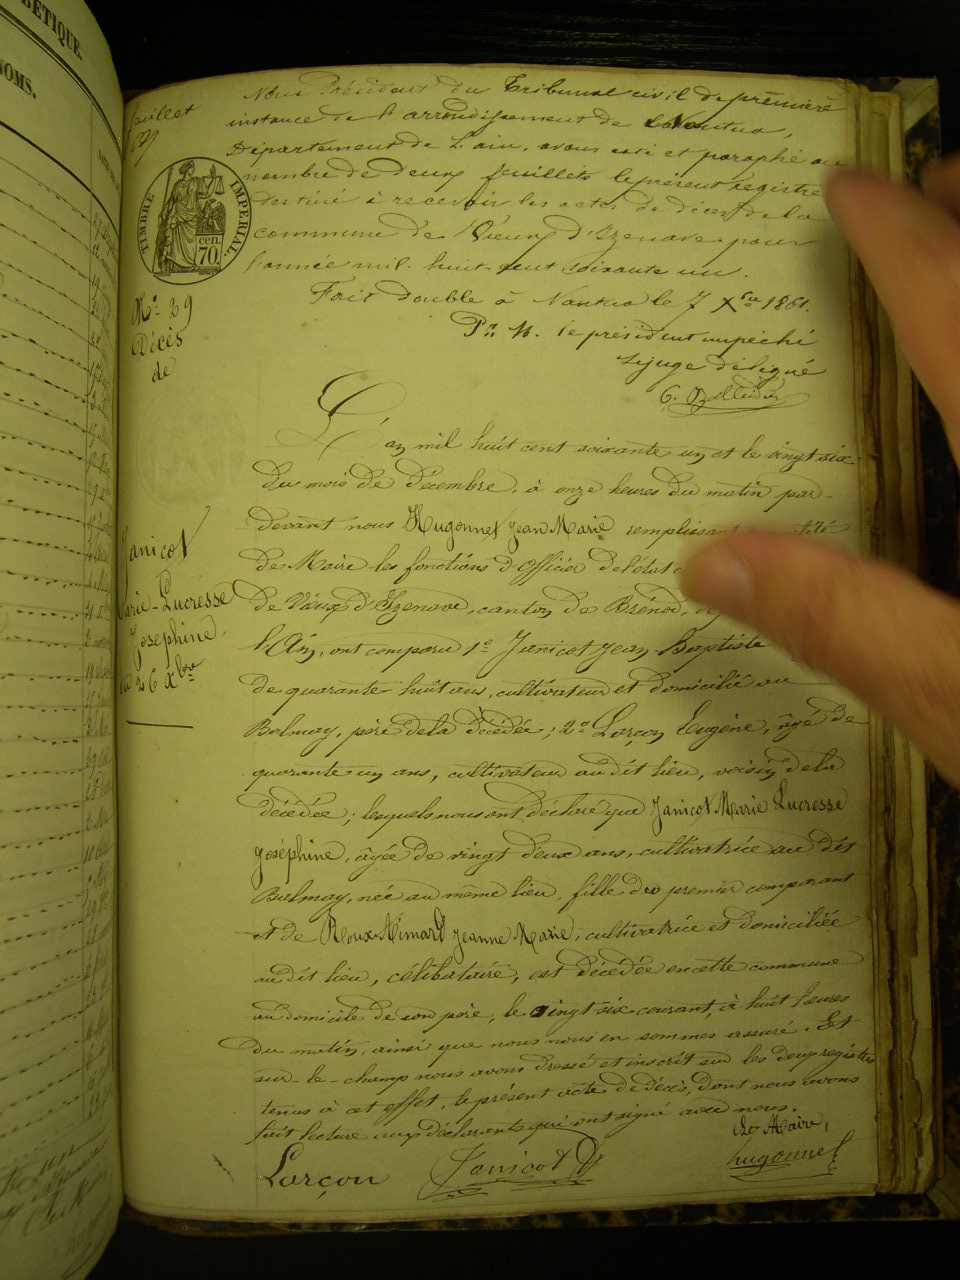 BÉTIQUE.
NOMS.
feuillet
Nous Président du Tribunal civil de première
instance de l'arrondissement de Nantua,
Département de L'ain, avons coté et paraphé au
nombre de deux feuillets le présent registre
destiné à recevoir les actes de décès de la
commune de Vieux d'Izenave pour
l'année mil-huit-cent soixante un.
Fait double à Nantua le 7 Xbre 1861.
Pr. M. le président empêché
Le juge délégué
TIMBRE IMPERIAL.
70 cen.
No 29
Décès
de
Janicot
Marie-Lucresse
Josephine,
Le 26 Xbre
L'an mil huit cent soixante un et le vingt six
du mois de décembre, à onze heures du matin par-
devant nous Hugonnet Jean Marie remplissant
de Maire les fonctions d'Officier de l'état
de Vieux d'Izenave, canton de Brénod,
l'Ain, ont comparu 1o Janicot Jean-Baptiste
de quarante huit ans, cultivateur et domicilié au
Balmay, père de la décédée; 2o Larçon Eugène, âgé de
quarante un ans, cultivateur au dit lieu, voisin de la
décédée; lesquels nous ont déclaré que Janicot Marie Lucresse
Joséphine, âgée de vingt deux ans, cultivatrice au dit
Balmay, née au même lieu, fille du premier comparant
et de Roux-Mimard Jeanne Marie, cultivatrice et domiciliée
au dit lieu, célibataire, est décédée en cette commune
au domicile de son père, le vingt six courant, à huit heures
du matin, ainsi que nous nous en sommes assuré. Et
sur-le-champ nous avons dressé et inscrit sur les deux registres
tenus à cet effet, le présent acte de décès, dont nous avons
fait lecture aux déclarants qui ont signé avec nous.
Le Maire,
Larçon Janicot hugonnet